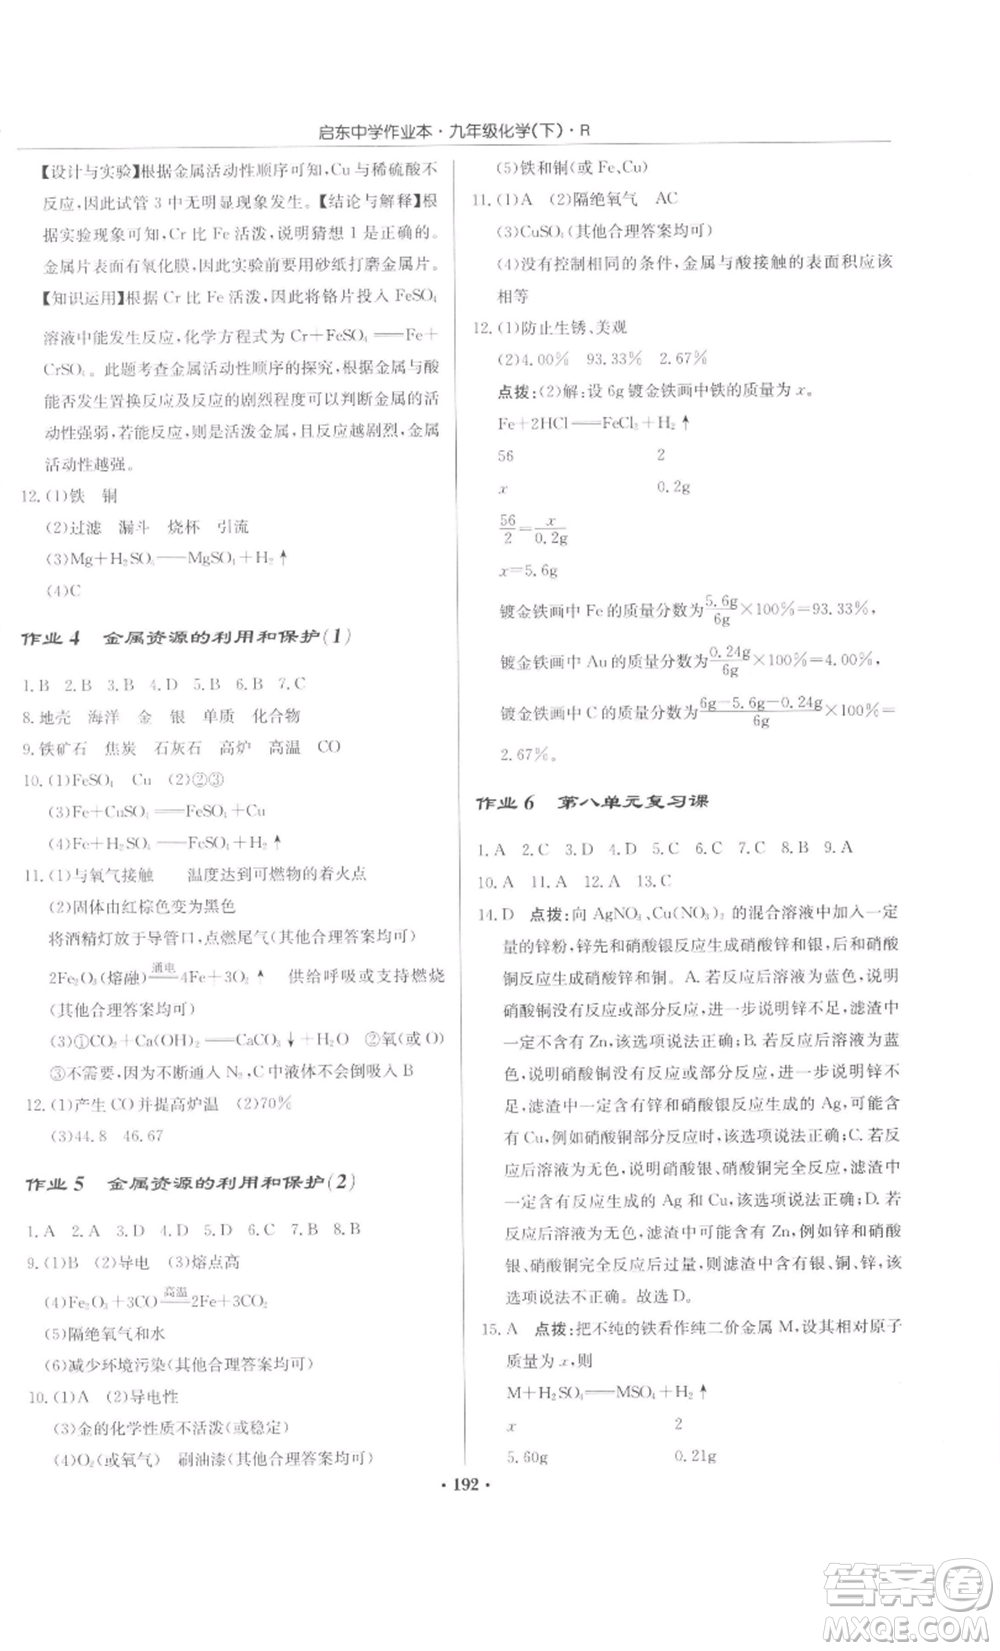 启东中学作业本·九年级化学(下)·R
【设计与实验】根据金属活动性顺序可知,Cu与稀硫酸不
反应,因此试管 3 中无明显现象发生。【结论与解释】根
据实验现象可知,Cr 比 Fe 活泼,说明猜想 1 是正确的。
金属片表面有氧化膜,因此实验前要用砂纸打磨金属片。
【知识运用】根据 Cr 比 Fe 活泼,因此将铬片投入 FeSO₄
溶液中能发生反应,化学方程式为 Cr+FeSO₄══Fe+
CrSO₄。此题考查金属活动性顺序的探究,根据金属与酸
能否发生置换反应及反应的剧烈程度可以判断金属的活
动性强弱,若能反应,则是活泼金属,且反应越剧烈,金属
活动性越强。
12.(1)铁 铜
(2)过滤 漏斗 烧杯 引流
(3)Mg+H₂SO₄══MgSO₄+H₂↑
(4)C
作业 4 金属资源的利用和保护(1)
1.B 2.B 3.B 4.D 5.B 6.B 7.C
8.地壳 海洋 金 银 单质 化合物
9.铁矿石 焦炭 石灰石 高炉 高温 CO
10.(1)FeSO₄ Cu (2)②③
(3)Fe+CuSO₄══FeSO₄+Cu
(4)Fe+H₂SO₄══FeSO₄+H₂↑
11.(1)与氧气接触 温度达到可燃物的着火点
(2)固体由红棕色变为黑色
将酒精灯放于导管口,点燃尾气(其他合理答案均可)
2Fe₂O₃(熔融)══通电══4Fe+3O₂↑ 供给呼吸或支持燃烧
(其他合理答案均可)
(3)①CO₂+Ca(OH)₂══CaCO₃↓+H₂O ②氧(或O)
③不需要,因为不断通入 N₂,C中液体不会进入硬质玻璃管
12.(1)产生 CO并提高炉温 (2)70%
(3)44.8 46.67
作业 5 金属资源的利用和保护(2)
1.A 2.A 3.D 4.D 5.D 6.C 7.B 8.B
9.(1)B (2)导电 (3)熔点高
(4)Fe₂O₃+3CO══高温══2Fe+3CO₂
(5)隔绝氧气和水
(6)减少环境污染(其他合理答案均可)
10.(1)A (2)导电性
(3)金的化学性质不活泼(或稳定)
(4)O₂(或氧气) 刷油漆(其他合理答案均可)
(5)铁和铜(或 Fe、Cu)
11.(1)A (2)隔绝氧气 AC
(3)CuSO₄(其他合理答案均可)
(4)没有控制相同的条件,金属与酸接触的表面积应该
相等
12.(1)防止生锈、美观
(2)4.00% 93.33% 2.67%
点拨:(2)解:设 6g 镀金铁画中铁的质量为 x。
Fe+2HCl══FeCl₂+H₂↑
56 2
x 0.2g
56/2=x/0.2g
x=5.6g
镀金铁画中 Fe 的质量分数为5.6g/6g×100%=93.33%,
镀金铁画中 Au 的质量分数为0.24g/6g×100%=4.00%,
镀金铁画中 C 的质量分数为(6g-5.6g-0.24g)/6g×100%=
2.67%。
作业 6 第八单元复习课
1.A 2.C 3.D 4.D 5.D 6.C 7.C 8.B 9.A
10.A 11.A 12.A 13.C
14.D 点拨:向 AgNO₃、Cu(NO₃)₂ 的混合溶液中加入一定
量的锌粉,锌先和硝酸银反应生成硝酸锌和银,后与硝酸
铜反应生成硝酸锌和铜。A.若反应后溶液为蓝色,说明
硝酸铜没有反应或部分反应,进一步说明锌不足,滤渣中
不含有 Zn,该选项说法正确;B.若反应后溶液为蓝
色,说明硝酸铜没有反应或部分反应,进一步说明锌不
足,滤渣中一定含有锌和硝酸银反应生成的 Ag,可能含
有 Cu,例如硝酸铜部分反应时,该选项说法正确;C.若反
应后溶液为无色,说明硝酸银、硝酸铜完全反应,滤渣中
一定含有反应生成的 Ag 和 Cu,该选项说法正确;D.若
反应后溶液为无色,滤渣中可能含有 Zn,例如锌和硝酸
银、硝酸铜恰好完全反应时,因此滤渣中含有银、铜、锌,该
选项说法不正确。故选 D。
15.A 点拨:把不纯的铁看作纯二价金属 M,设其相对原子
质量为 x,则
M+H₂SO₄══MSO₄+H₂↑
x 2
5.60g 0.21g
·192·
答案圈
MXQE.COM